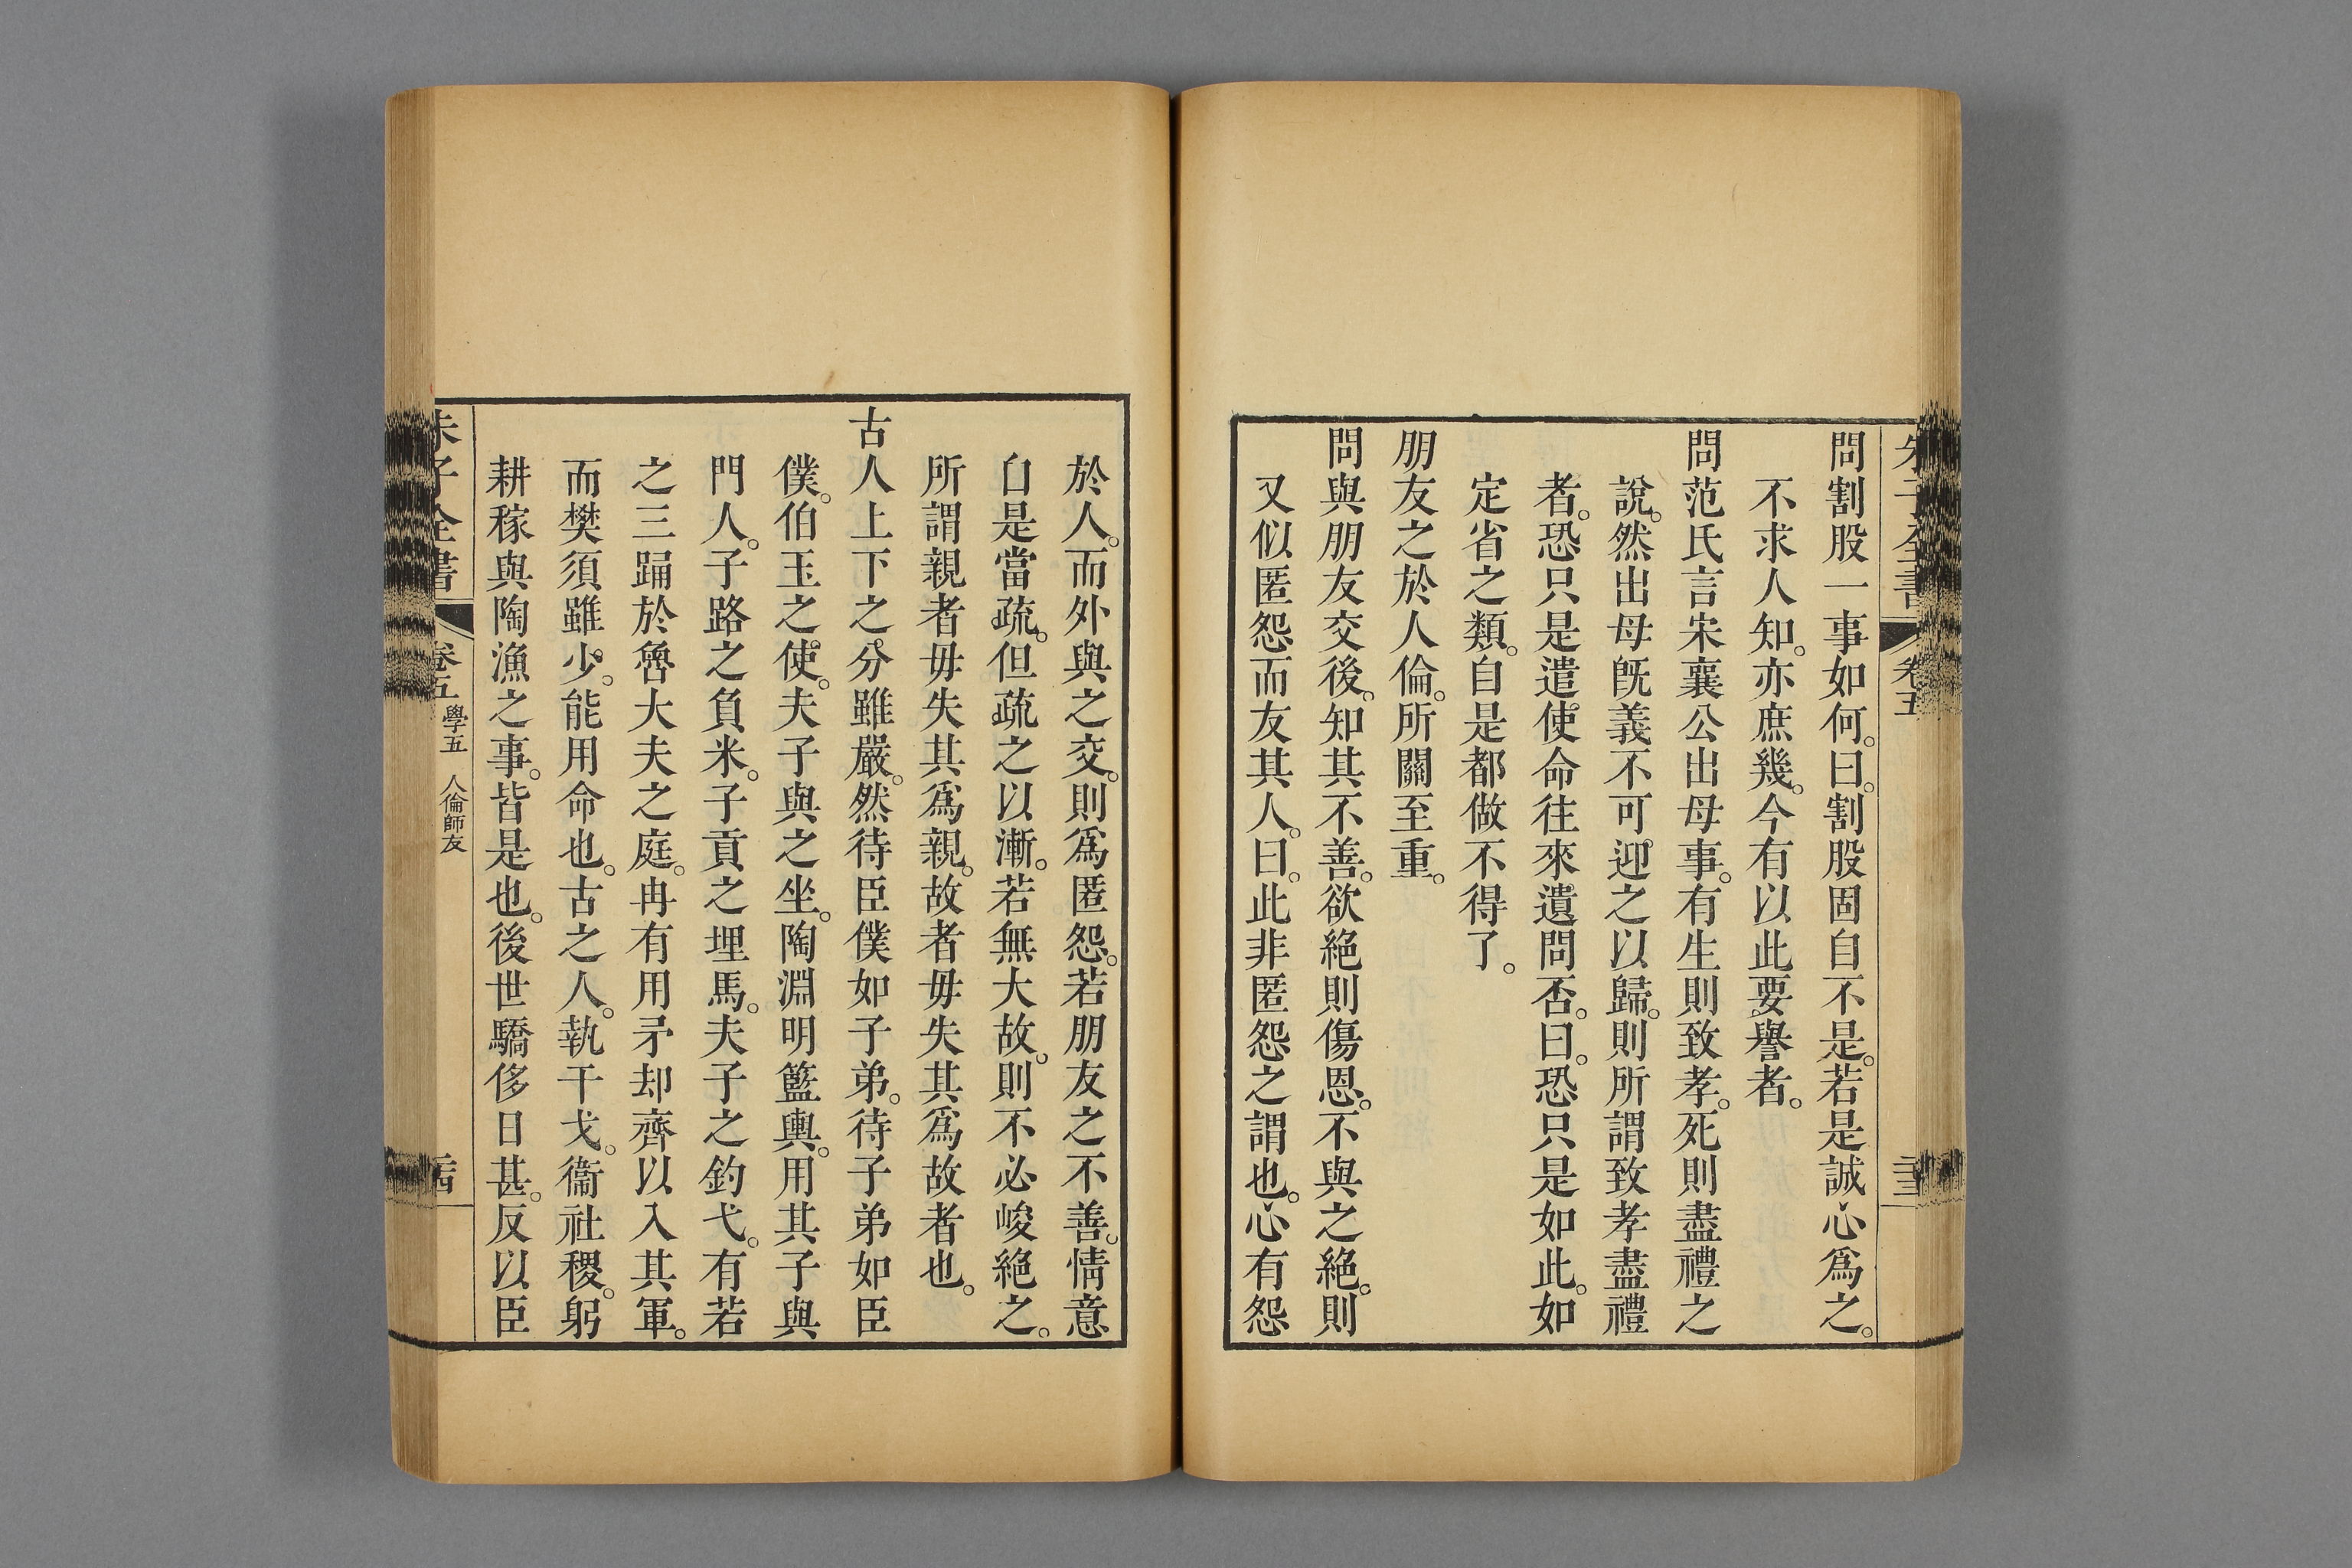 朱子全書 卷五 二十三
問割股一事如何。曰。割股固自不是。若是誠心爲之。
不求人知。亦庶幾。今有以此要譽者。
問范氏言宋襄公出母事。有生則致孝。死則盡禮之
說。然出母旣義不可迎之以歸。則所謂致孝盡禮
者。恐只是遣使命往來遺問否。曰。恐只是如此。如
定省之類。自是都做不得了。
朋友之於人倫。所關至重。
問與朋友交後。知其不善。欲絕則傷恩。不與之絕。則
又似匿怨而友其人。曰。此非匿怨之謂也。心有怨
於人。而外與之交。則爲匿怨。若朋友之不善。情意
自是當疏。但疏之以漸。若無大故。則不必峻絕之。
所謂親者毋失其爲親。故者毋失其爲故者也。
古人上下之分雖嚴。然待臣僕如子弟。待子弟如臣
僕。伯玉之使。夫子與之坐。陶淵明籃輿。用其子與
門人。子路之負米。子貢之埋馬。夫子之釣弋。有若
之三踊於魯大夫之庭。冉有用矛却齊以入其軍。
而樊須雖少。能用命也。古之人。執干戈。衞社稷。躬
耕稼與陶漁之事。皆是也。後世驕侈日甚。反以臣
朱子全書 卷五 學五 人倫師友 二十四